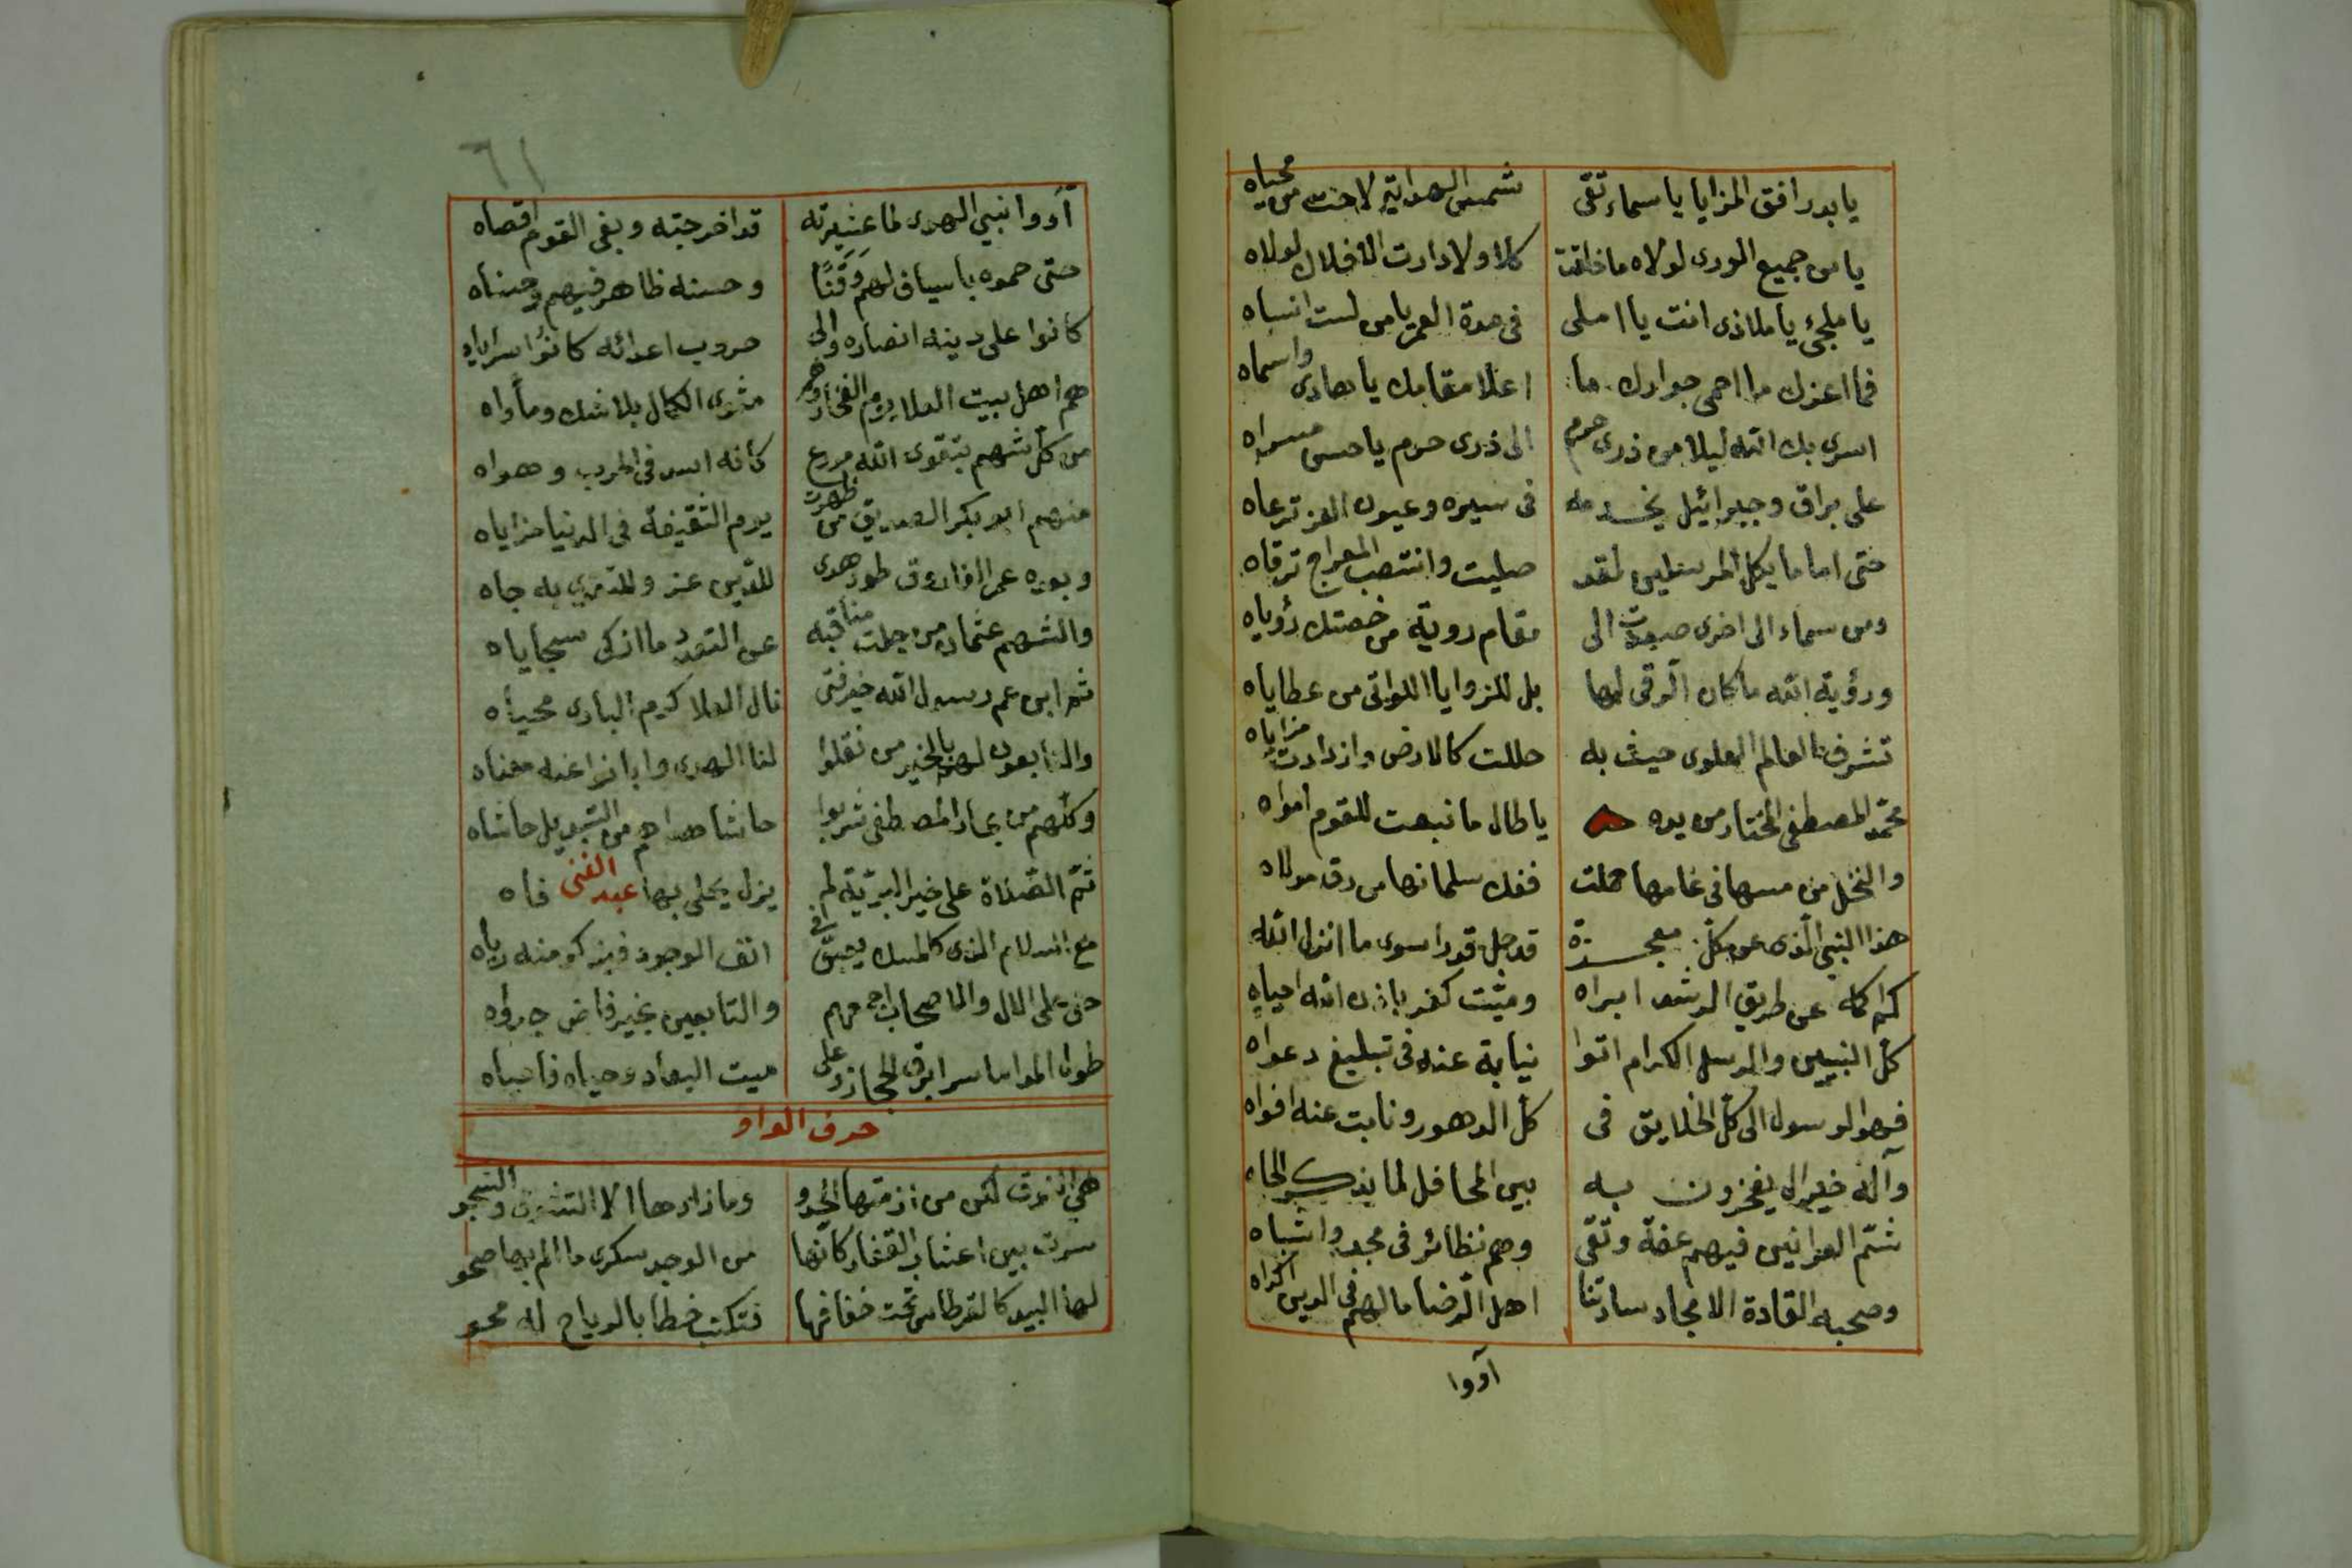 يا بدر افق المزايا يا سماء تقى شمس الهداية لاحت من محياه
يا من جميع الورى لولاه ما خلقت كلا ولا دارت الافلاك لولاه
يا ملجئ يا ملاذى انت يا املى فى مدة العمر يا من لست انساه
فما اعزك ما احمى جوارك ما اعلا مقامك يا هادى واسماه
اسرى بك الله ليلا من ذرى حرم الى ذرى حرم يا حسن مسراه
على براق وجبرائيل يخدمه فى سيره وعيون العز ترعاه
حتى اماما بكل المرسلين لقد صليت وانتصب المعراج ترقاه
ومن سماء الى اخرى صعدت الى مقام روية من خصتك رؤياه
ورؤية الله ما كان الرقى لها بل للمزايا اللواتى من عطاياه
تشرف العالم العلوى حيث به حللت كالارض وازدادت مزاياه
محمد المصطفى المختار من يده يا طال ما نبعت للقوم امواه
والنخل من مسها فى عامها حملت ففك سلمانها من رق مولاه
هذا النبى الذى عن كل معجزة قد جل قدرا سوى ما انزل الله
كم اكمه عن طريق الرشد ابراه وميت كفر باذن الله احياه
كل النبيين والرسل الكرام اتوا نيابة عنه فى تبليغ دعواه
فهو الرسول الى كل الخلايق فى كل الدهور ونابت عنه افواه
وآله خير ال يفخرون به بين المحافل لما يذكر الجاه
شم العرانين فيهم عفة وتقى وهم نظائر فى مجد واشباه
وصحبه القادة الامجاد سادتنا اهل الرضا مالهم فى الدين اكراه
آووا
٦١
آووا نبي الهدى لما عشيرته قد اخرجته وبغى القوم اقصاه
حتى حموه باسياف لهم وقنا وحسنه ظاهر فيهم وحسناه
كانوا على دينه انصاره والى حروب اعدائه كانوا سراياه
هم اهل بيت العلا يوم الفخار وهم مثوى الكمال بلا شك ومأواه
من كل شهم بتقوى الله مدرع كانه اسد فى الحرب
منهم ابو بكر الصديق من ظهرت يوم الثقيفة فى الدنيا مزاياه
وبعده عمر الفاروق طود هدى للدين عز وللدنيا به جاه
والشهم عثمان من جلت مناقبه عن التعدد ما ازكى سجاياه
ثم ابن عم رسول الله خير فتى نال العلا كرم البارى محياه
والتابعون لهم بالخير من نقلوا لنا الهدى وابانوا عنه معناه
وكلهم من بحار المصطفى شربوا حاشا هداهم من التبديل حاشاه
ثم الصلاة على خير البرية لم يزل يحلى بها عبد الغنى فاه
مع السلام الذى كالمسك يعبق فى انف الوجود فيزكو منه رياه
حتى على الال والاصحاب اجمعهم والتابعين بخير فاض جدواه
طول المدا ما سرا برق الحجاز وعلى ميت البعاد وحياه فاحياه
حرف الواو
هى النوق لكن من ازمتها الحدو وما زادها الا التشوق والشجو
سرت بين اعشاب القفار كانها من الوجد سكرى ما الم بها صحو
لها البيد كالقرطاس تحت خفافها فتكتب خطا بالرياح له محو